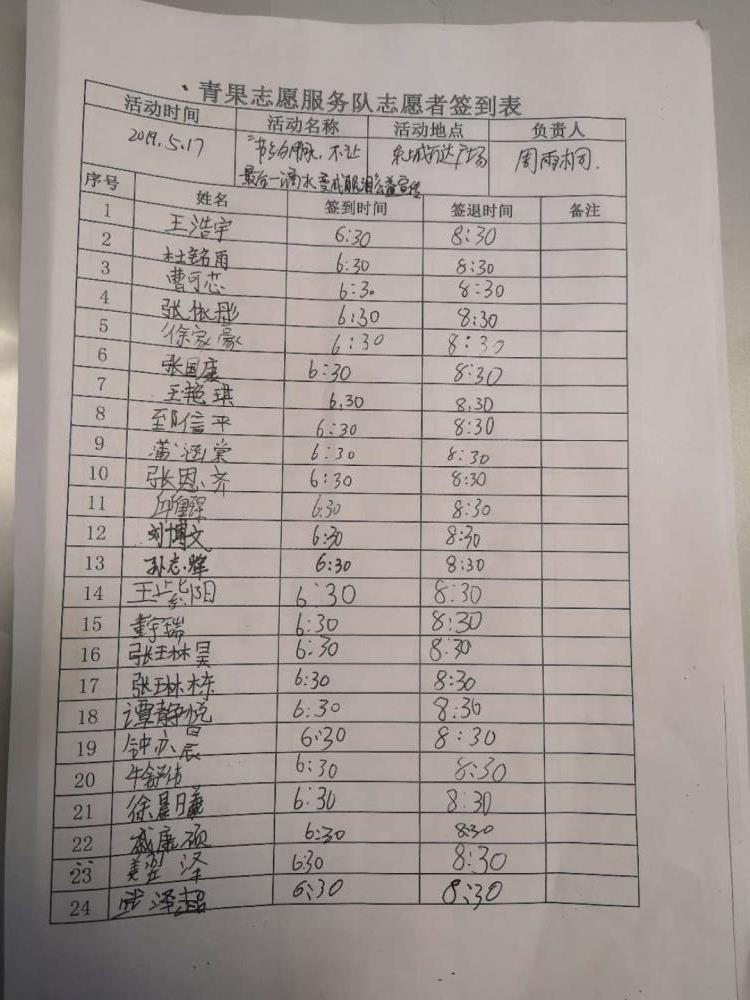 青果志愿服务队志愿者签到表
活动时间 活动名称 活动地点 负责人
2019.5.17 节约用水,不让 东城万达广场 周雨桐.
最后一滴水变成眼泪公益宣传
序号 姓名 签到时间 签退时间 备注
1 王浩宇 6:30 8:30
2 杜铭雨 6:30 8:30
3 曹可芯 6:30 8:30
4 张依彤 6:30 8:30
5 徐家豪 6:30 8:30
6 张国康 6:30 8:30
7 王艳琪 6.30 8.30
8 信平 6:30 8:30
9 蒲涵棠 6:30 8:30
10 张恩齐 6:30 8:30
11 邱 6:30 8:30
12 刘博文 6:30 8:30
13 孙志辉 6:30 8:30
14 王紫阳 6:30 8:30
15 董宇瑞 6:30 8:30
16 张琳昊 6:30 8:30
17 张琳栋 6:30 8:30
18 谭静悦 6:30 8:30
19 钟亦晨 6:30 8:30
20 牛舒 6:30 8:30
21 徐晨曦 6:30 8:30
22 戚康硕 6:30 8:30
23 姜 泽 6:30 8:30
24 泽超 6:30 8:30